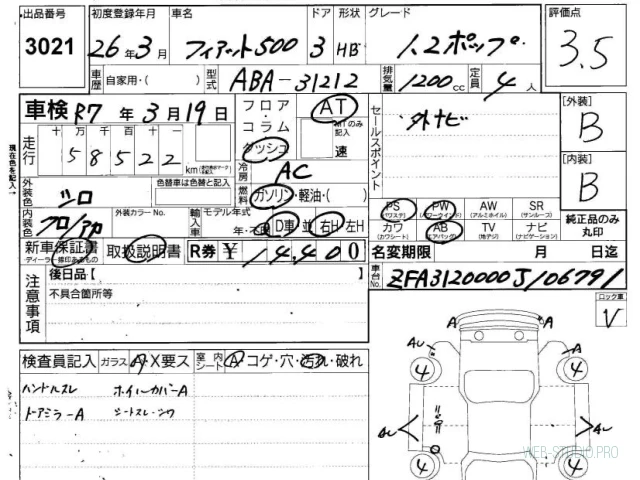 出品番号 初度登録年月 車名 ドア 形状 グレード 評価点
3021 26年3月 フィアット500 3 HB 1.2ポップ 3.5
車歴 自家用・( ) 型式 ABA-31212 排気量 1200cc 定員 4人
車検 R7年3月19日 フロア・コラム・ダッシュ AT MTのみ記入 速
セールスポイント 外ナビ
[外装] B
現在色を記入→
走行 十万千百十一 58522 km
冷房 AC
[内装] B
外装色 シロ 色替車は色替と記入
燃料 ガソリン・軽油・( )
内装色 クロ/アカ 外装カラーNo. 輸入車 モデル年式 年・不明 D車 並 右H 左H
PS (パワステ) PW (パワーウインド) AW (アルミホイル) SR (サンルーフ)
カワ (カワシート) AB (エアバッグ) TV (地デジ) ナビ (ナビゲーション)
純正品のみ丸印
新車保証書 ディーラー捺印あるもの 取扱説明書 R券 ¥14,400
名変期限 月 日迄
注意事項 後日品[ ]
不具合箇所等
車台No. ZFA3120000J106791
ロック車 V
検査員記入 ガラス A・X要ス 室内シート A・コゲ・穴・汚れ・破れ
ハンドルスレ ホイルカバーA
ドアミラーA シートスレ・シワ
A A
AU A
4 4
AU AU
4 4
WEB-STUDIO.PRO